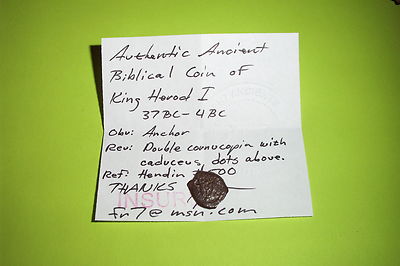 Authentic Ancient
Biblical Coin of
King Herod I
37BC-4BC
Obv: Anchor
Rev: Double cornucopia with
caduceus, dots above.
Ref: Hendin #500
THANKS
INSUR
fr7@msn.com